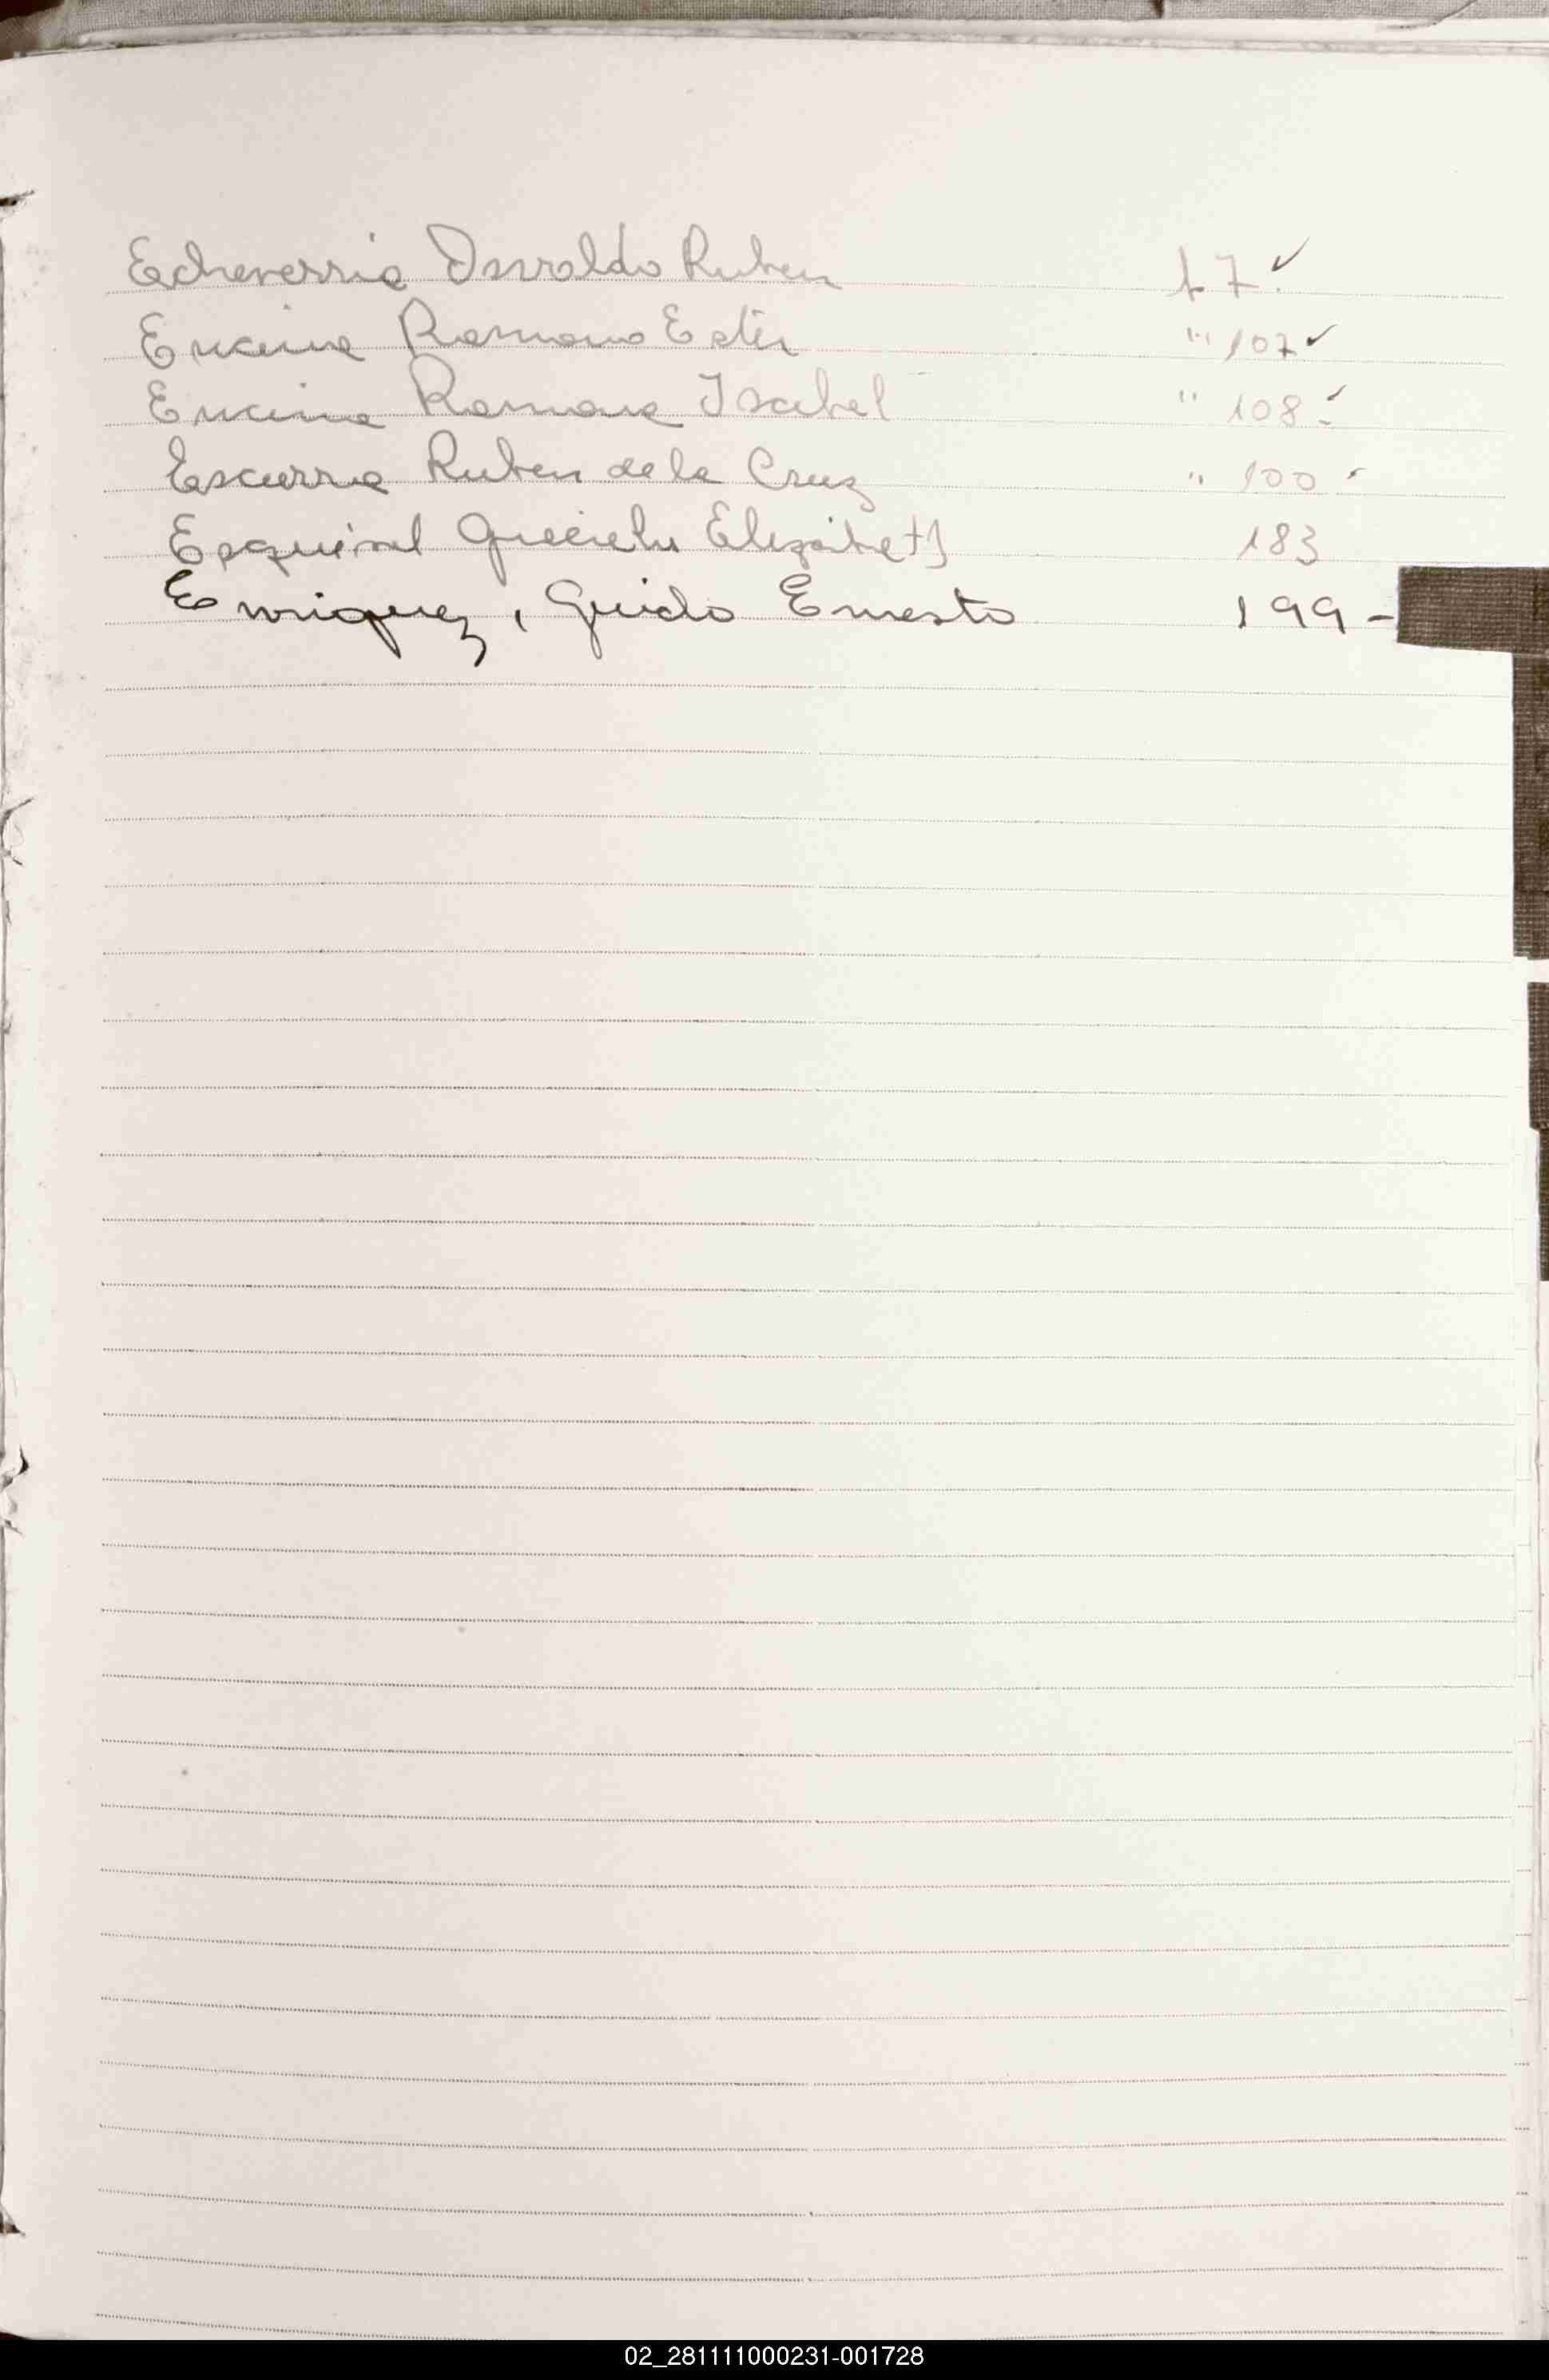 Echeverria Osvaldo Ruben f. 7. ✓
Encina Romano Ester " 107 ✓
Encina Romana Isabel " 108 ✓
Escurra Ruben de la Cruz " 100 -
Esquivel Graciela Elizabeth 183
Enriquez, Guido Ernesto 199 -
02_281111000231-001728